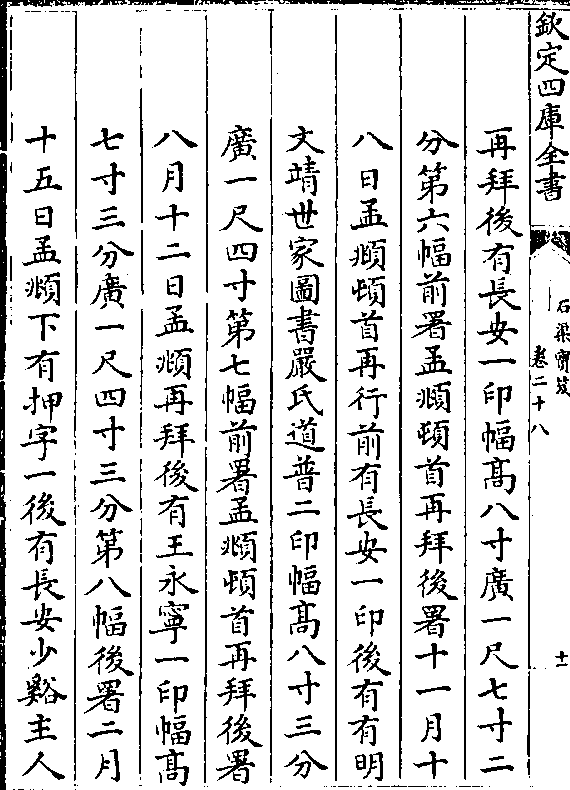 欽定四庫全書
石渠寶笈
卷二十八
十一
再拜後有長安一印幅髙八寸廣一尺七寸二
分第六幅前署孟頫頓首再拜後署十一月十
八日孟頫頓首再行前有長安一印後有有明
文靖世家圖書嚴氏道普二印幅髙八寸三分
廣一尺四寸第七幅前署孟頫頓首再拜後署
八月十二日孟頫再拜後有王永寧一印幅髙
七寸三分廣一尺四寸三分第八幅後署二月
十五日孟頫下有押字一後有長安少谿主人